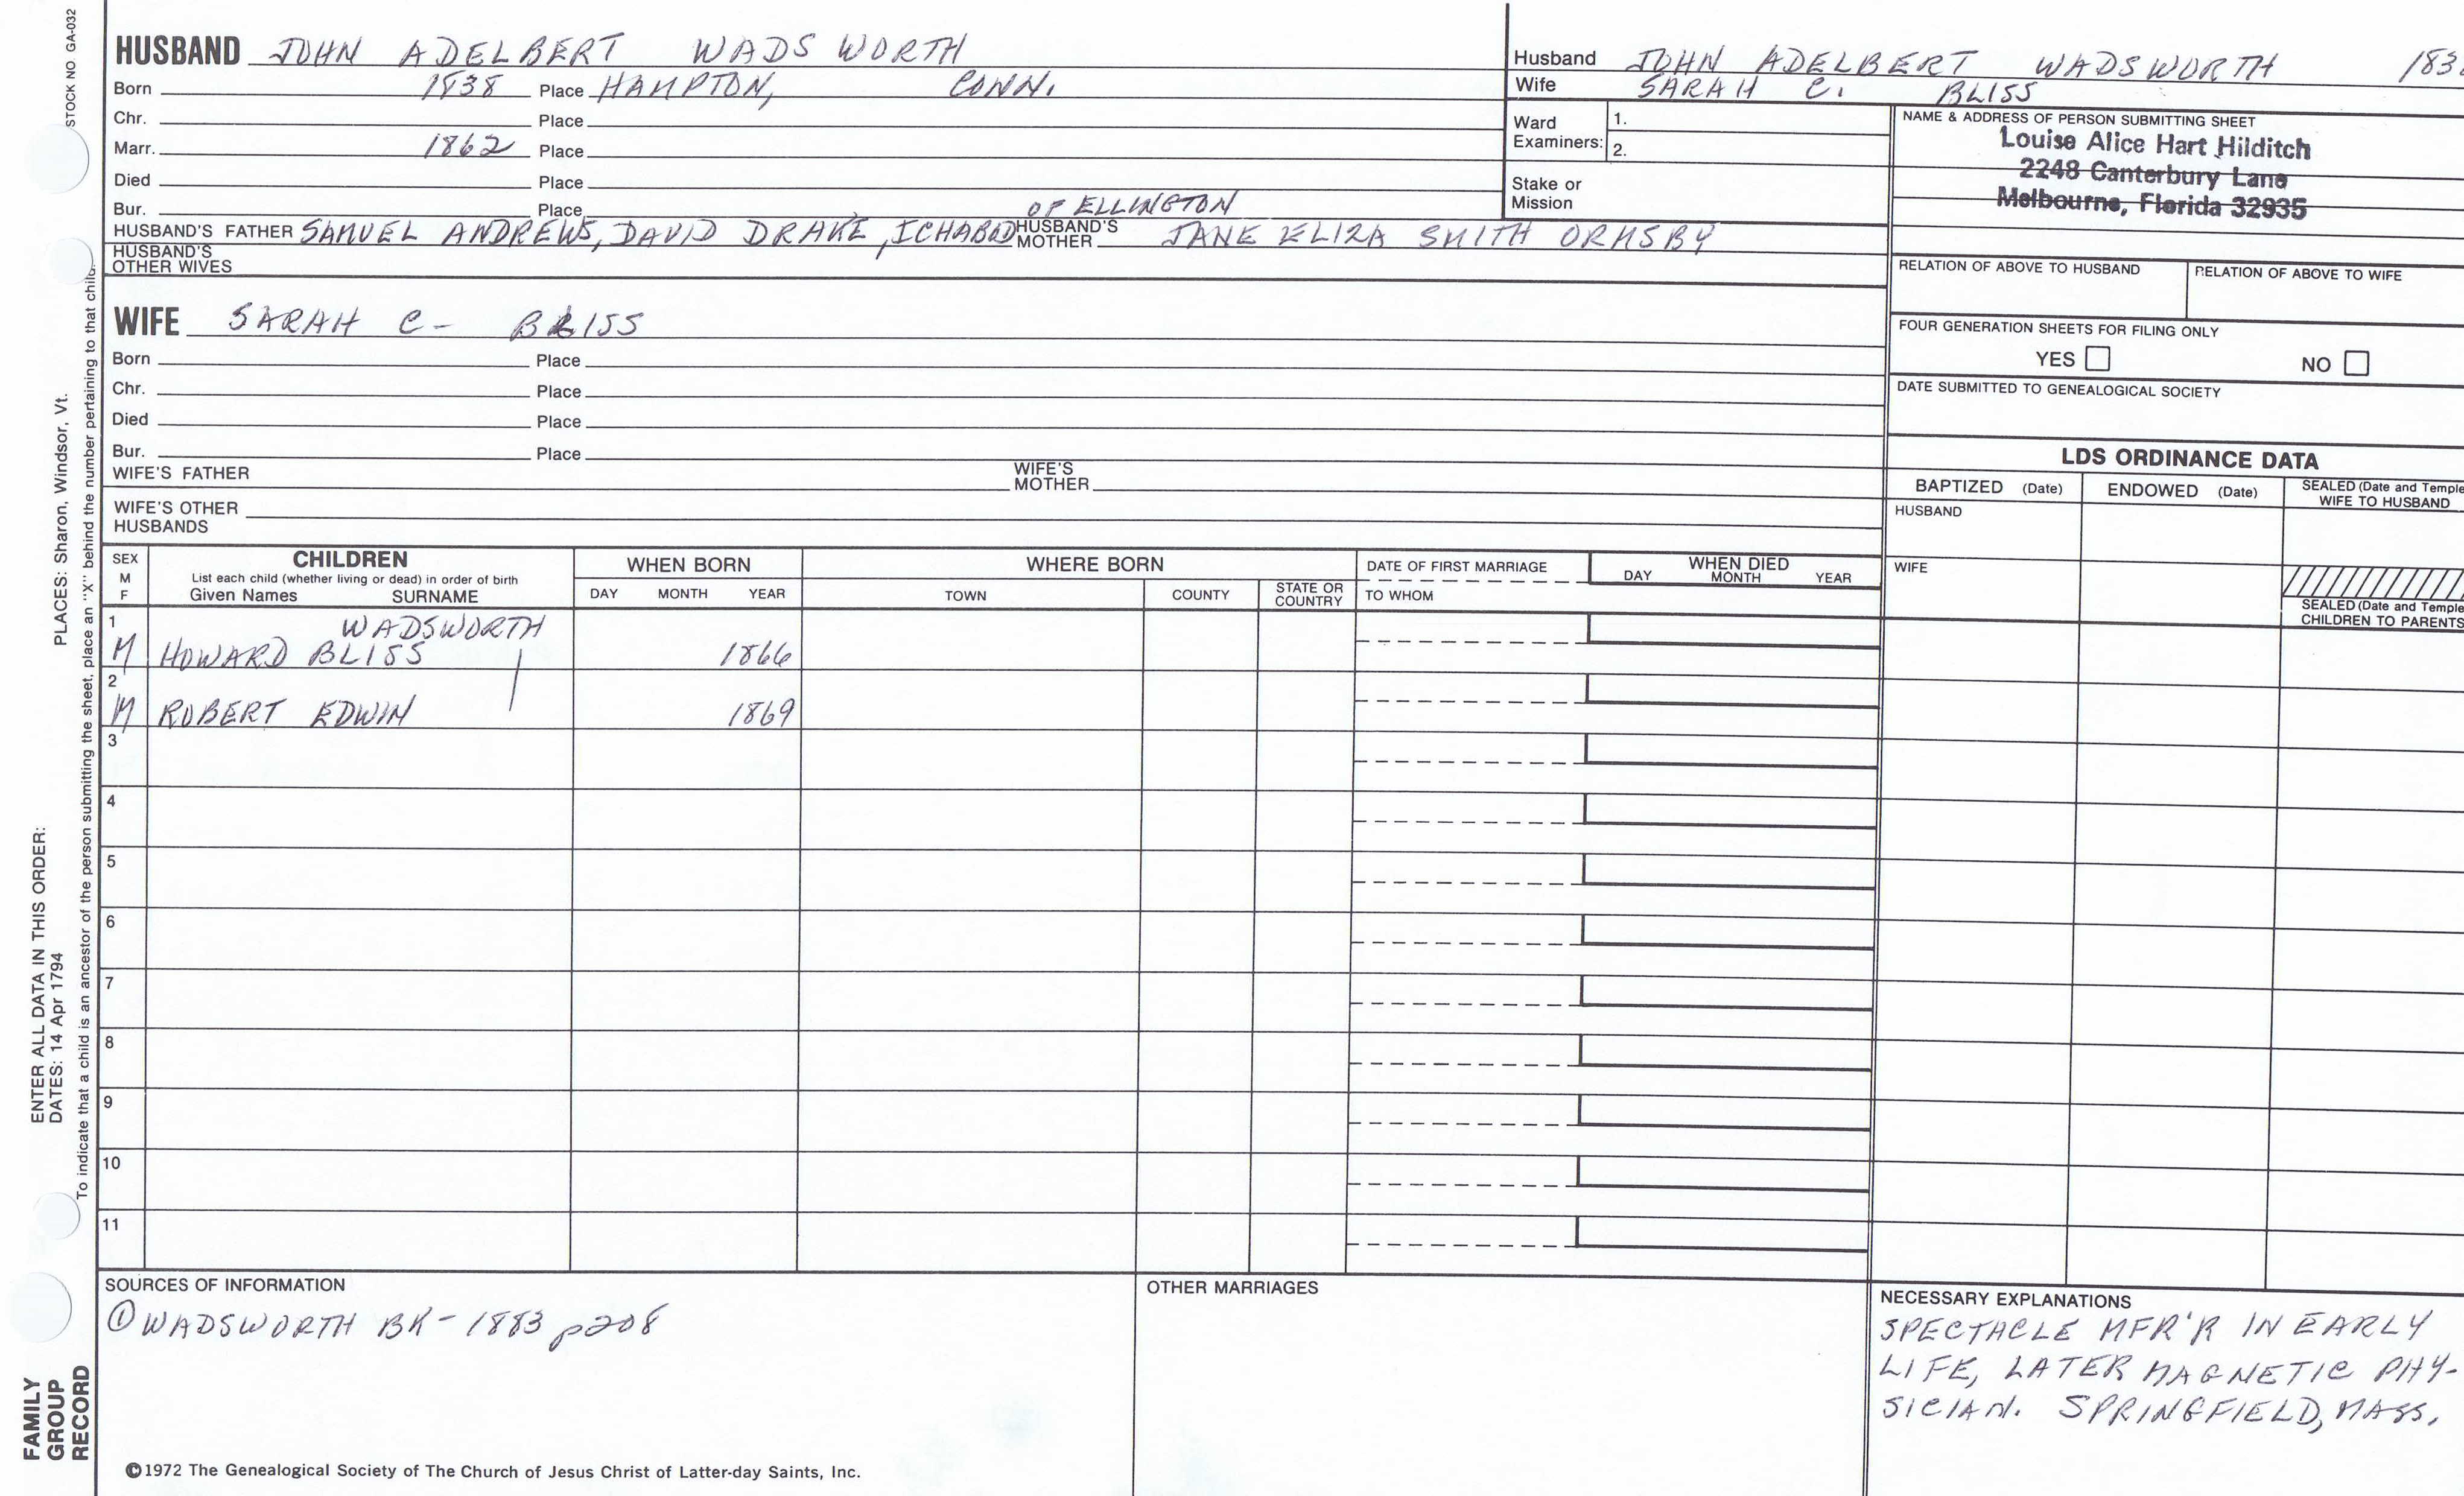 STOCK NO GA-032
PLACES: Sharon, Windsor, Vt.
ENTER ALL DATA IN THIS ORDER:
DATES: 14 Apr 1794
To indicate that a child is an ancestor of the person submitting the sheet, place an "X" behind the number pertaining to that child.
FAMILY
GROUP
RECORD
HUSBAND JOHN ADELBERT WADSWORTH
Born 1838 Place HAMPTON, CONN.
Chr. Place
Marr. 1862 Place
Died Place
Bur. Place
OF ELLINGTON
HUSBAND'S FATHER SAMUEL ANDREWS, DAVID DRAKE, ICHABOD HUSBAND'S MOTHER JANE ELIZA SMITH ORMSBY
HUSBAND'S
OTHER WIVES
WIFE SARAH C- BLISS
Born Place
Chr. Place
Died Place
Bur. Place
WIFE'S FATHER WIFE'S MOTHER
WIFE'S OTHER
HUSBANDS
Husband JOHN ADELBERT WADSWORTH 183
Wife SARAH C. BLISS
Ward
Examiners:
1.
2.
Stake or
Mission
NAME & ADDRESS OF PERSON SUBMITTING SHEET
Louise Alice Hart Hilditch
2248 Canterbury Lane
Melbourne, Florida 32935
RELATION OF ABOVE TO HUSBAND RELATION OF ABOVE TO WIFE
FOUR GENERATION SHEETS FOR FILING ONLY
YES NO
DATE SUBMITTED TO GENEALOGICAL SOCIETY
LDS ORDINANCE DATA
BAPTIZED (Date) ENDOWED (Date) SEALED (Date and Temple
WIFE TO HUSBAND
HUSBAND
WIFE
SEALED (Date and Temple
CHILDREN TO PARENTS
SEX
M
F
CHILDREN
List each child (whether living or dead) in order of birth
Given Names SURNAME
WHEN BORN
DAY MONTH YEAR
WHERE BORN
TOWN COUNTY STATE OR COUNTRY
DATE OF FIRST MARRIAGE
TO WHOM
WHEN DIED
DAY MONTH YEAR
1 WADSWORTH
M HOWARD BLISS 1866
2
M ROBERT EDWIN 1869
3
4
5
6
7
8
9
10
11
SOURCES OF INFORMATION
① WADSWORTH BK - 1883 p208
OTHER MARRIAGES
NECESSARY EXPLANATIONS
SPECTACLE MFR'R IN EARLY
LIFE, LATER MAGNETIC PHY-
SICIAN. SPRINGFIELD, MASS.
©1972 The Genealogical Society of The Church of Jesus Christ of Latter-day Saints, Inc.